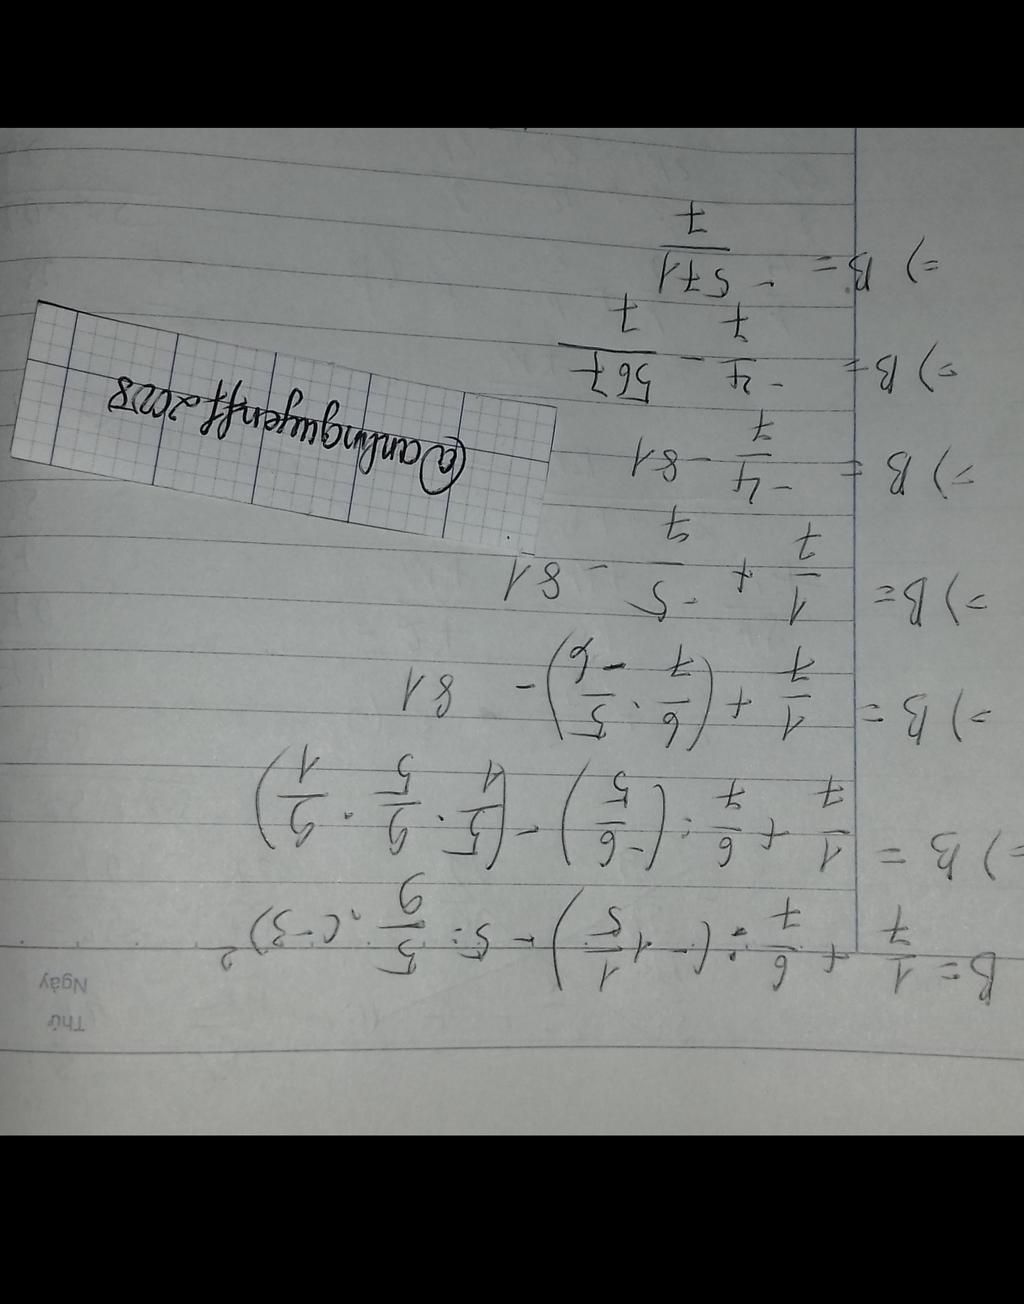 Thứ
Ngày
B = 1/7 + 6/7 : (-1 1/5) - 5 : 5/9 . (-3)²
=) B = 1/7 + 6/7 : (-6/5) - (5/1 . 9/5 . 9/1)
=) B = 1/7 + (6/7 . 5/-6) - 81
=) B = 1/7 + -5/7 - 81
=) B = -4/7 - 81
=) B = -4/7 - 567/7
=) B = -571/7
@anhnguyenff2008